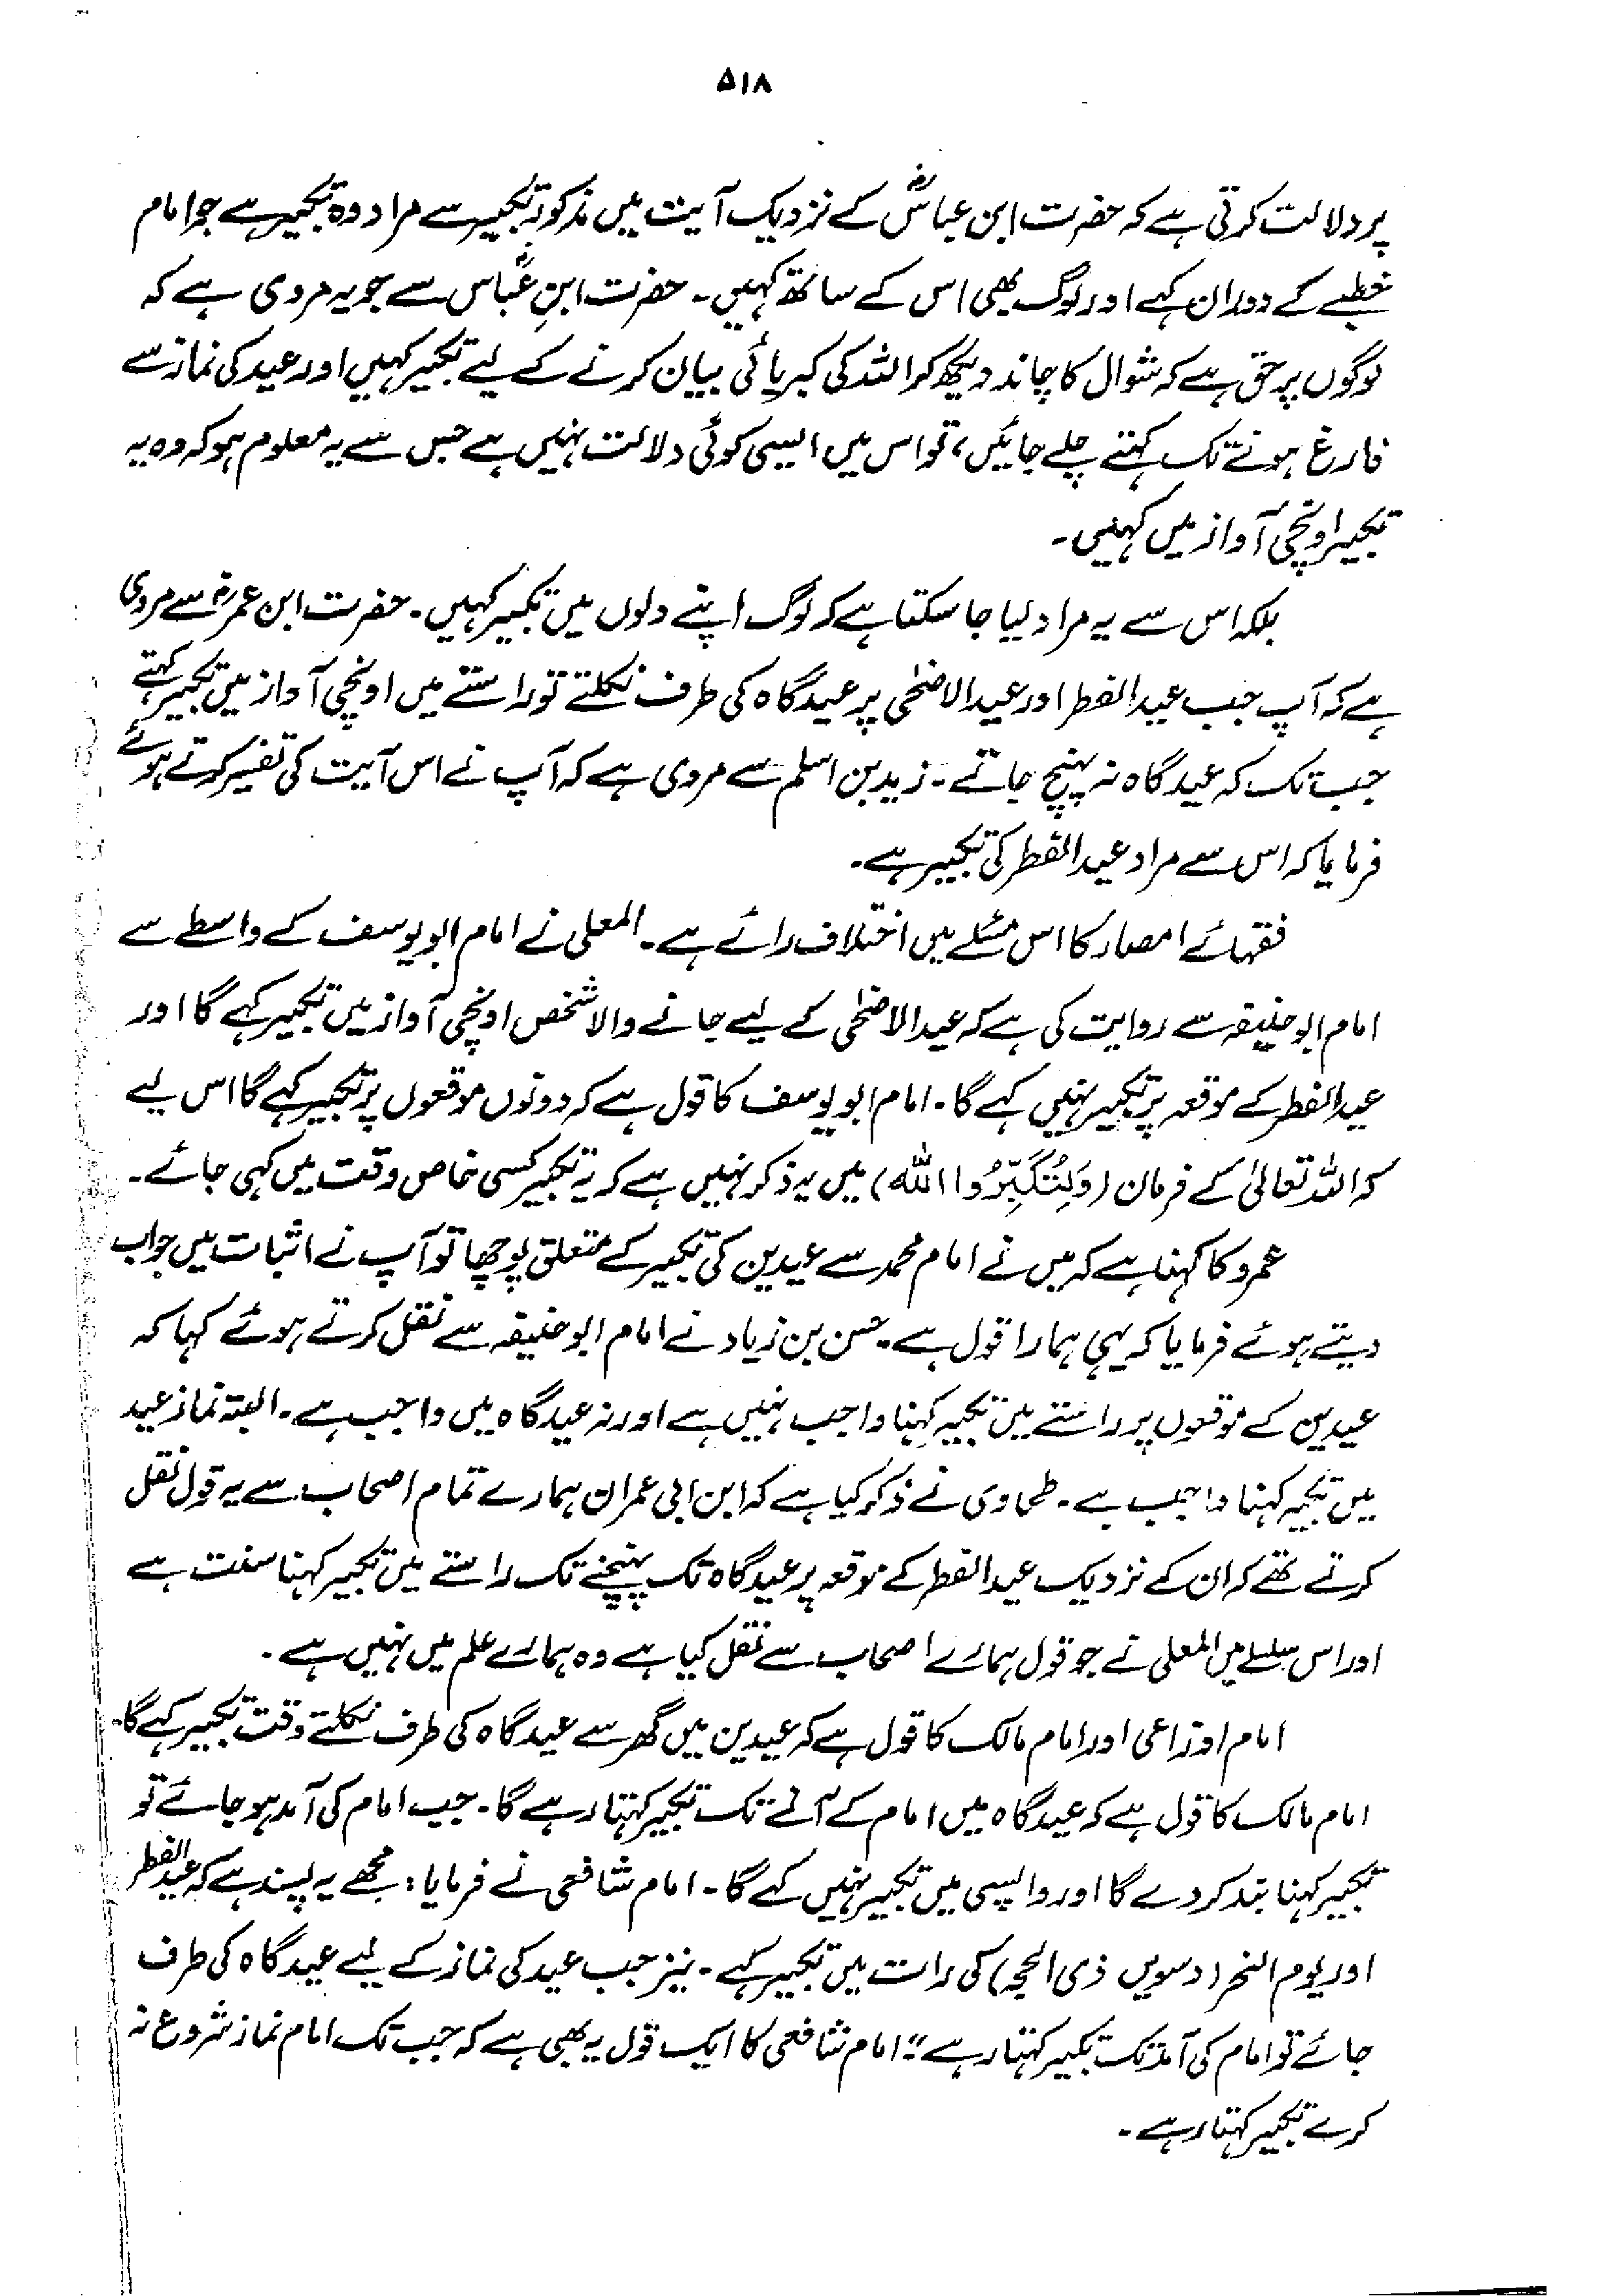 ۵۱۸
پر دلالت کرتی ہے کہ حضرت ابن عباسؓ کے نزدیک آیت میں مذکورہ تکبیر سے مراد وہ تکبیر ہے جو امام
خطبے کے دوران کہے اور لوگ بھی اس کے ساتھ کہیں۔ حضرت ابنِ عباسؓ سے جو یہ مروی ہے کہ
لوگوں پر حق ہے کہ شوال کا چاند دیکھ کر اللہ کی کبریائی بیان کرنے کے لیے تکبیر کہیں اور عید کی نماز سے
فارغ ہونے تک کہتے چلے جائیں، تو اس میں ایسی کوئی دلالت نہیں ہے جس سے یہ معلوم ہو کہ وہ یہ
تکبیر اونچی آواز میں کہیں۔
بلکہ اس سے یہ مراد لیا جا سکتا ہے کہ لوگ اپنے دلوں میں تکبیر کہیں۔ حضرت ابن عمرؓ سے مروی
ہے کہ آپ جب عید الفطر اور عید الاضحٰی پر عیدگاہ کی طرف نکلتے تو راستے میں اونچی آواز میں تکبیر کہتے
جب تک کہ عیدگاہ نہ پہنچ جاتے۔ زید بن اسلم سے مروی ہے کہ آپ نے اس آیت کی تفسیر کرتے ہوئے
فرمایا کہ اس سے مراد عید الفطر کی تکبیر ہے۔
فقہائے امصار کا اس مسئلے میں اختلاف رائے ہے۔ المعلی نے امام ابو یوسف کے واسطے سے
امام ابو حنیفہ سے روایت کی ہے کہ عید الاضحٰی کے لیے جانے والا شخص اونچی آواز میں تکبیر کہے گا اور
عید الفطر کے موقعہ پر تکبیر نہیں کہے گا۔ امام ابو یوسف کا قول ہے کہ دونوں موقعوں پر تکبیر کہے گا اس لیے
کہ اللہ تعالیٰ کے فرمان (وَلِتُكَبِّرُوا اللّٰہ) میں یہ ذکر نہیں ہے کہ یہ تکبیر کسی خاص وقت میں کہی جائے۔
عمرو کا کہنا ہے کہ میں نے امام محمد سے عیدین کی تکبیر کے متعلق پوچھا تو آپ نے اثبات میں جواب
دیتے ہوئے فرمایا کہ یہی ہمارا قول ہے۔ حسن بن زیاد نے امام ابو حنیفہ سے نقل کرتے ہوئے کہا کہ
عیدین کے موقعوں پر راستے میں تکبیر کہنا واجب نہیں ہے اور نہ عیدگاہ میں واجب ہے۔ البتہ نماز عید
میں تکبیر کہنا واجب ہے۔ طحاوی نے ذکر کیا ہے کہ ابن ابی عمران ہمارے تمام اصحاب سے یہ قول نقل
کرتے تھے کہ ان کے نزدیک عید الفطر کے موقعہ پر عیدگاہ تک پہنچنے تک راستے میں تکبیر کہنا سنت ہے
اور اس سلسلے میں المعلی نے جو قول ہمارے اصحاب سے نقل کیا ہے وہ ہمارے علم میں نہیں ہے۔
امام اوزاعی اور امام مالک کا قول ہے کہ عیدین میں گھر سے عیدگاہ کی طرف نکلتے وقت تکبیر کہے گا۔
امام مالک کا قول ہے کہ عیدگاہ میں امام کے آنے تک تکبیر کہتا رہے گا۔ جب امام کی آمد ہو جائے تو
تکبیر کہنا بند کر دے گا اور واپسی میں تکبیر نہیں کہے گا۔ امام شافعی نے فرمایا: مجھے یہ پسند ہے کہ عید الفطر
اور یوم النحر (دسویں ذی الحجہ) کی رات میں تکبیر کہے۔ نیز جب عید کی نماز کے لیے عیدگاہ کی طرف
جائے تو امام کی آمد تک تکبیر کہتا رہے"؛ امام شافعی کا ایک قول یہ بھی ہے کہ جب تک امام نماز شروع نہ
کرے تکبیر کہتا رہے۔